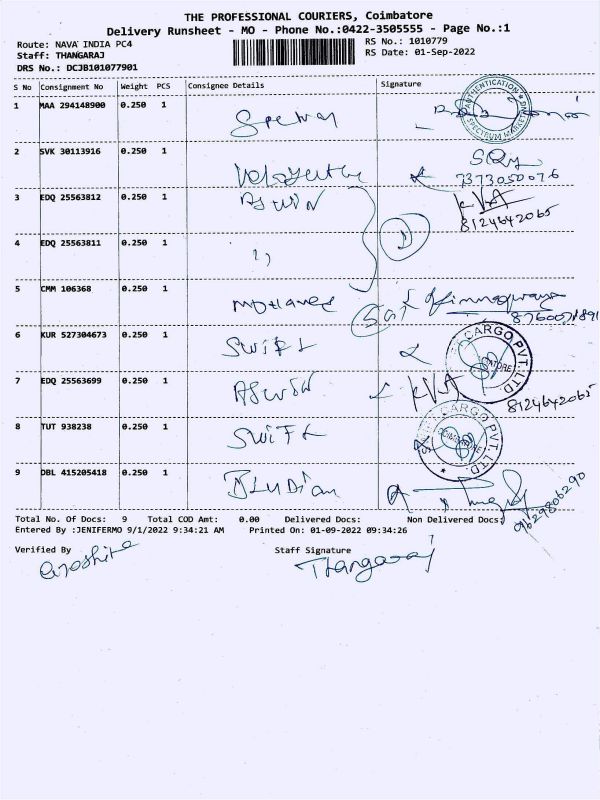 THE PROFESSIONAL COURIERS, Coimbatore
Delivery Runsheet - MO - Phone No.:0422-3505555 - Page No.:1
Route: NAVA INDIA PC4 RS No.: 1010779
Staff: THANGARAJ RS Date: 01-Sep-2022
DRS No.: DCJB101077901
S No Consignment No Weight PCS Consignee Details Signature
1 MAA 294148900 0.250 1
AUTHENTICATION
2 SVK 30113916 0.250 1
7373050076
3 EDQ 25563812 0.250 1 ASWIN KVA
8124642065
4 EDQ 25563811 0.250 1 ,,
5 CMM 106368 0.250 1
6 KUR 527304673 0.250 1 SWIFT CARGO PVT. LTD
7 EDQ 25563699 0.250 1 ASWIN KVA
8124642065
8 TUT 938238 0.250 1 SWIFT CARGO PVT. LTD. COIMBATORE
9 DBL 415205418 0.250 1
9629806290
Total No. Of Docs: 9 Total COD Amt: 0.00 Delivered Docs: Non Delivered Docs:
Entered By :JENIFERMO 9/1/2022 9:34:21 AM Printed On: 01-09-2022 09:34:26
Verified By Staff Signature
Thangaraj